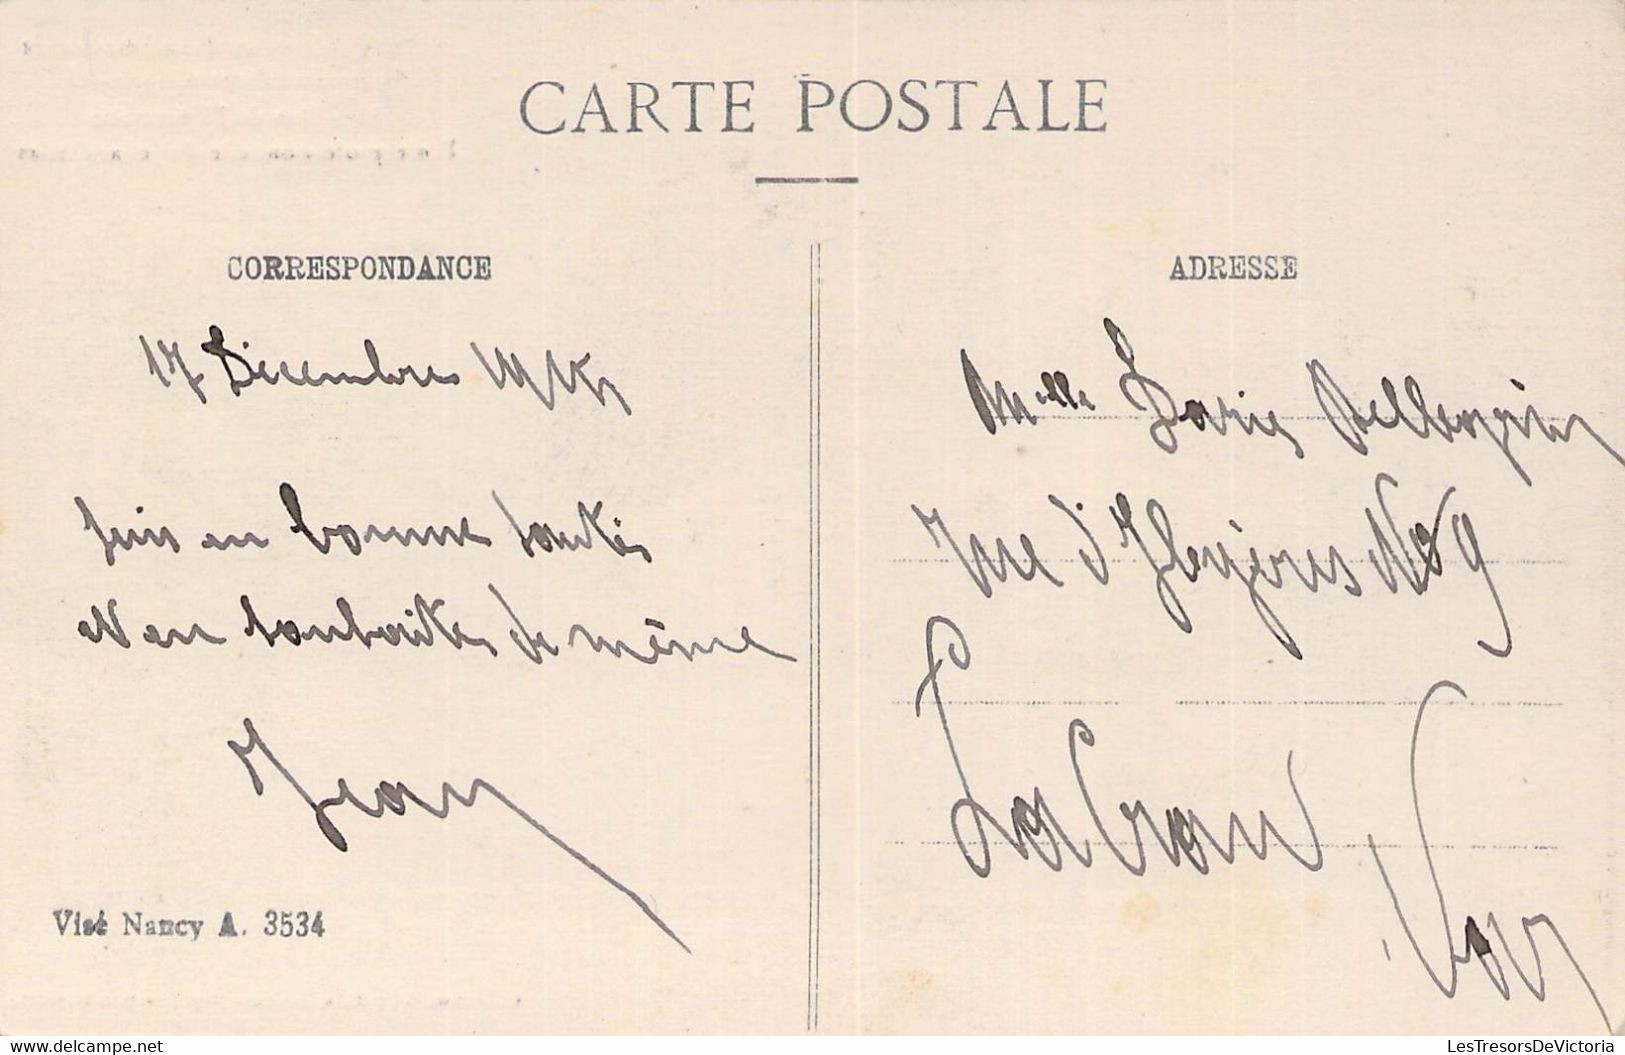 CARTE POSTALE
CORRESPONDANCE
17 Decembre 1915
suis en bonne santés
et en souhaites de même
Jean
Visé Nancy A. 3534
ADRESSE
Melle
Rue d' No 9
La Crau
Var
delcampe.net
LesTresorsDeVictoria